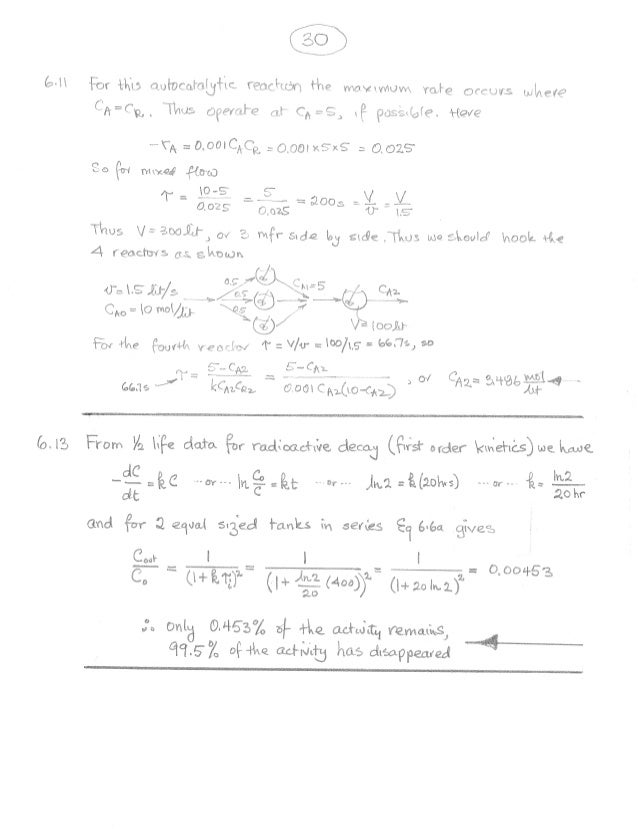 30
6.11 For this autocatalytic reaction the maximum rate occurs where
CA = CR. Thus operate at CA = 5, if possible. Here
-rA = 0.001 CA CR = 0.001 x 5 x 5 = 0.025
So for mixed flow
τ = 10-5/0.025 = 5/0.025 = 200s = V/v = V/1.5
Thus V = 300 lit, or 3 mfr side by side. Thus we should hook the
4 reactors as shown
v = 1.5 lit/s
CA0 = 10 mol/lit
0.5
0.5
0.5
CA1=5
CA2
V=100 lit
For the fourth reactor τ = V/v = 100/1.5 = 66.7s, so
66.7s τ = 5-CA2/kCA2CR2 = 5-CA2/0.001 CA2(10-CA2), or CA2 = 2.486 mol/lit
6.13 From ½ life data for radioactive decay (first order kinetics) we have
-dC/dt = kC ...or... ln C0/C = kt ...or... ln2 = k(20hrs) ...or... k = ln2/20hr
and for 2 equal sized tanks in series Eq 6.6a gives
Cout/C0 = 1/(1+kτi)² = 1/(1+ ln2/20 (400))² = 1/(1+20 ln2)² = 0.00453
∴ only 0.453% of the activity remains,
99.5% of the activity has disappeared